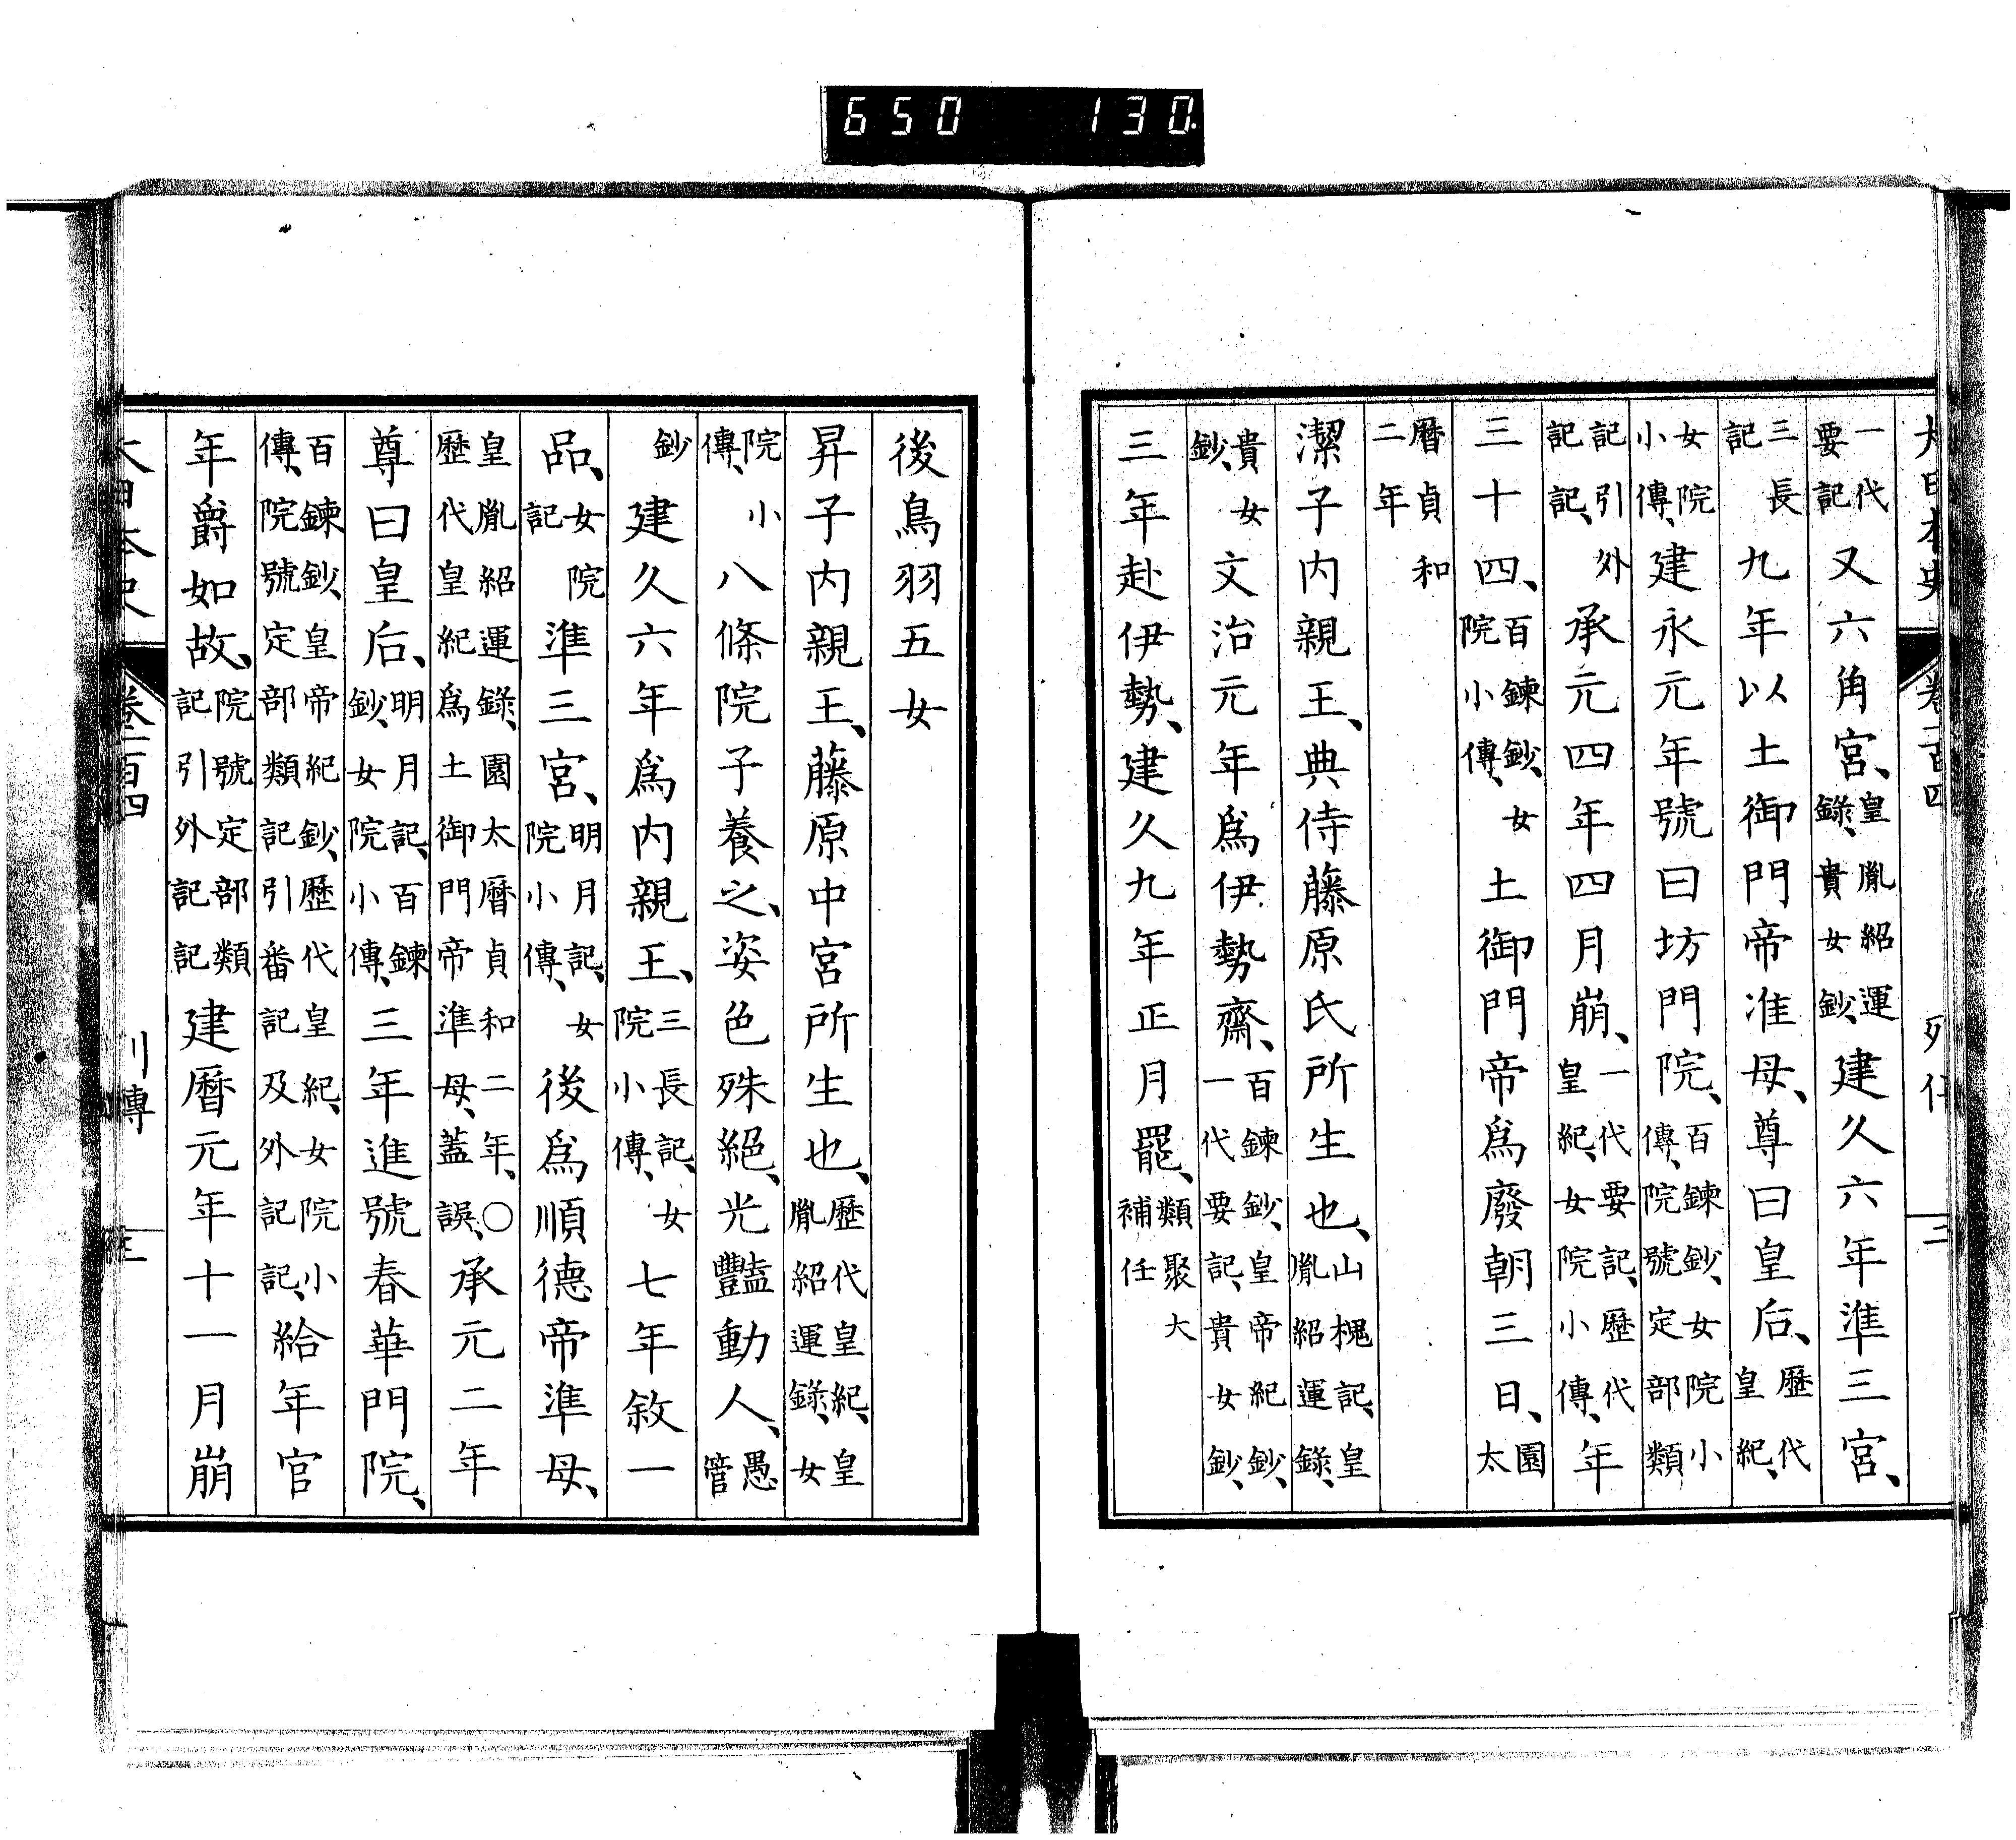 大日本史 卷一百四 列傳 三
一代要記又六角宮、皇胤紹運錄、貴女鈔、建久六年準三宮、
三長記九年以土御門帝准母、尊曰皇后、歷代皇紀、
女院小傳、建永元年號曰坊門院、百鍊鈔、女院小傳、院號定部類
記引外記記、承元四年四月崩、一代要記、歷代皇紀、女院小傳、年
三十四、百鍊鈔、女院小傳、土御門帝爲廢朝三日、園太
曆貞和二年
潔子內親王、典侍藤原氏所生也、山槐記、皇胤紹運錄、
貴女鈔、文治元年爲伊勢齋、百鍊鈔、皇帝紀鈔、一代要記、貴女鈔、
三年赴伊勢、建久九年正月罷、類聚大補任
後鳥羽五女
昇子內親王、藤原中宮所生也、歷代皇紀、皇胤紹運錄、女
院小傳、八條院子養之、姿色殊絕、光豔動人、愚管
鈔建久六年爲內親王、三長記、女院小傳、七年敘一
品、女院記準三宮、明月記、女院小傳、後爲順德帝準母、
皇胤紹運錄、園太曆貞和二年、○歷代皇紀爲土御門帝準母、蓋誤、承元二年
尊曰皇后、明月記、百鍊鈔、女院小傳、三年進號春華門院、
百鍊鈔、皇帝紀鈔、歷代皇紀、女院小傳、院號定部類記引番記及外記記、給年官
年爵如故、院號定部類記引外記記建曆元年十一月崩
大日本史 卷一百四 列傳 三
650 130.